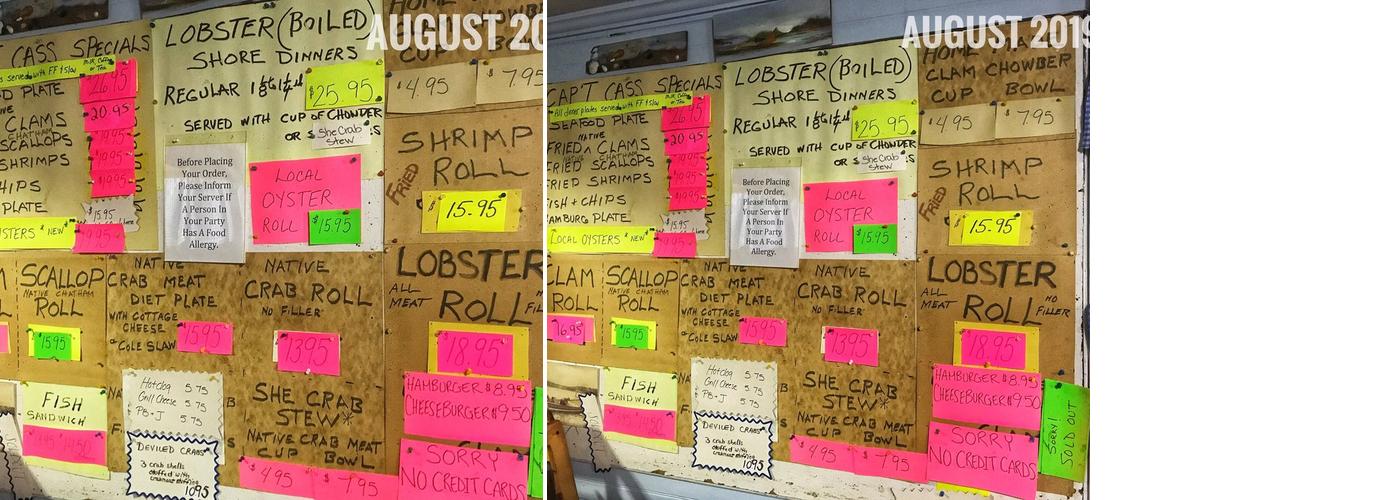 AUGUST 20
C CASS SPECIALS
LOBSTER (BOILED)
SHORE DINNERS
REGULAR
$25.95
SERVED WITH CUP OF CHOWDER
OR
She Crab
Stew
CUP
BOWL
$4.95
$7.95
D PLATE
26.95
CLAMS
20.95
CHATHAM
SCALLOPS
SHRIMPS
HIPS
PLATE
$15.95
STERS * NEW
Before Placing
Your Order,
Please Inform
Your Server If
A Person In
Your Party
Has A Food
Allergy.
LOCAL
OYSTER
ROLL
$15.95
SHRIMP
ROLL
FRIED
$15.95
SCALLOP
NATIVE CHATHAM
ROLL
$15.95
NATIVE
CRAB MEAT
DIET PLATE
WITH COTTAGE
CHEESE
COLE SLAW
15.95
NATIVE
CRAB ROLL
NO FILLER
13.95
LOBSTER
ALL
MEAT
ROLL
$18.95
FISH
SANDWICH
Hotdog 5.75
Grill Cheese 5.75
PB+J 5.75
DEVILED CRABS
3 crab shells
stuffed with
crabmeat stuffing
10.95
SHE CRAB
STEW*
NATIVE CRAB MEAT
CUP BOWL
$4.95 $7.95
HAMBURGER $8.95
CHEESEBURGER $9.50
SORRY
NO CREDIT CARDS
AUGUST 2019
CAP'T CASS SPECIALS
All dinner plates served with FF & Slaw
Milk, Coffee
or Tea
SEAFOOD PLATE
26.95
NATIVE
FRIED CLAMS
20.95
FRIED SCALLOPS
FRIED SHRIMPS
FISH + CHIPS
HAMBURG PLATE
$15.95
LOCAL OYSTERS * NEW *
LOBSTER (BOILED)
SHORE DINNERS
REGULAR
$25.95
SERVED WITH CUP OF CHOWDER
OR
She Crab
Stew
HOME MADE
CLAM CHOWDER
CUP BOWL
$4.95
$7.95
Before Placing
Your Order,
Please Inform
Your Server If
A Person In
Your Party
Has A Food
Allergy.
LOCAL
OYSTER
ROLL
$15.95
SHRIMP
ROLL
FRIED
$15.95
CLAM
ROLL
16.95
SCALLOP
NATIVE CHATHAM
ROLL
$15.95
NATIVE
CRAB MEAT
DIET PLATE
WITH COTTAGE
CHEESE
COLE SLAW
15.95
NATIVE
CRAB ROLL
NO FILLER
13.95
LOBSTER
ALL
MEAT
ROLL
NO
FILLER
$18.95
FISH
SANDWICH
Hotdog 5.75
Grill Cheese 5.75
PB+J 5.75
DEVILED CRABS
3 crab shells
stuffed with
crabmeat stuffing
10.95
SHE CRAB
STEW*
NATIVE CRAB MEAT
CUP BOWL
$4.95 $7.95
HAMBURGER $8.95
CHEESEBURGER $9.50
SORRY
NO CREDIT CARDS
SORRY!
SOLD OUT